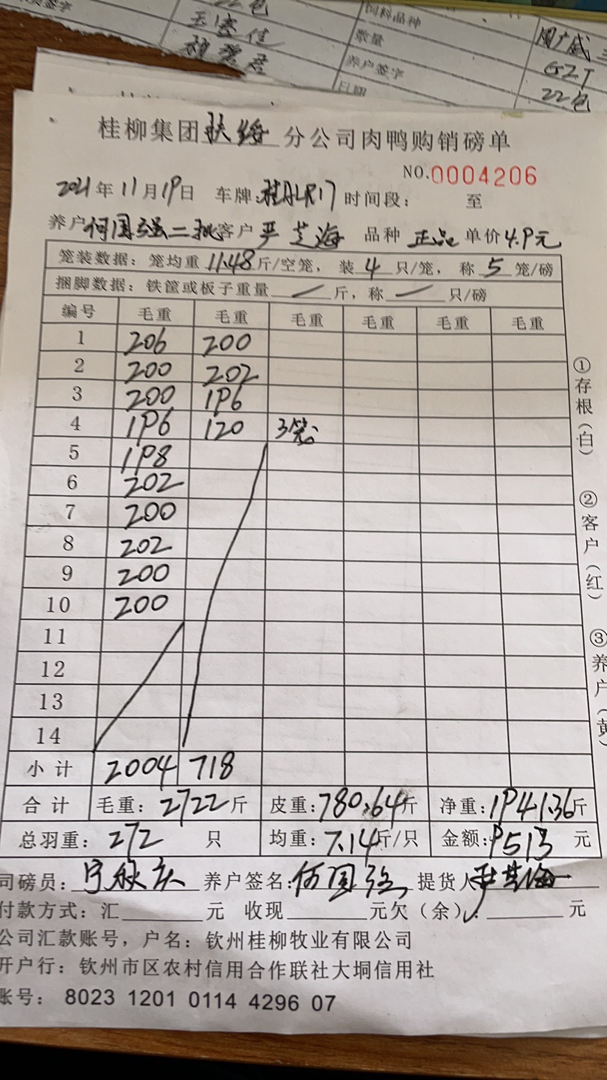 饲料品种
数量
养户签字
日期
22包
GZT
22包
桂柳集团扶绥分公司肉鸭购销磅单
NO.0004206
2021年11月19日 车牌: 时间段: 至
养户何国强二批客户严芝海 品种正品单价4.9元
笼装数据：笼均重11.48斤/空笼，装4只/笼，称5笼/磅
捆脚数据：铁筐或板子重量/斤，称/只/磅
编号 毛重 毛重 毛重 毛重 毛重 毛重
1 206 200
2 200 202
3 200 196
4 196 120 3笼
5 198
6 202
7 200
8 202
9 200
10 200
11
12
13
14
小计 2004 718
合计 毛重：2722斤 皮重：780.64斤 净重：1941.36斤
总羽重：272只 均重：7.14斤/只 金额：9513元
司磅员： 养户签名：何国强 提货人严芝海
付款方式：汇 元 收现 元欠（余）： 元
公司汇款账号，户名：钦州桂柳牧业有限公司
开户行：钦州市区农村信用合作联社大垌信用社
账号： 8023 1201 0114 4296 07
①存根（白）
②客户（红）
③养户（黄